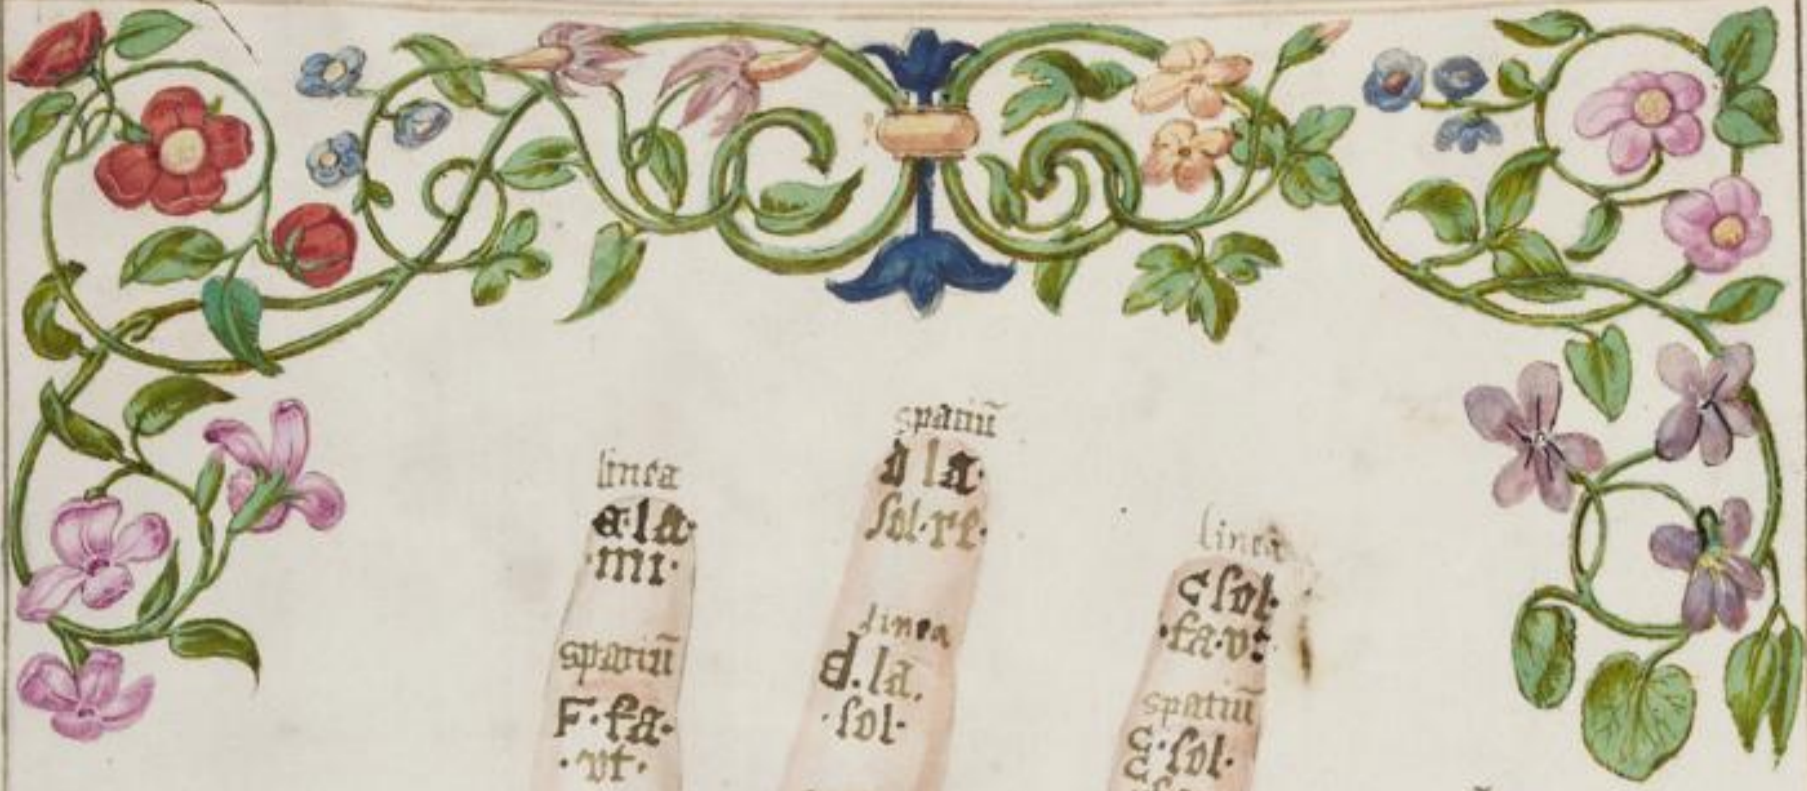 linea
e·la·
·mi·
spatiū
F·fa·
·vt·
spatiū
d la·
sol·re·
linea
d.la.
·sol·
linea
c sol·
·fa·vt
spatiū
c·sol·